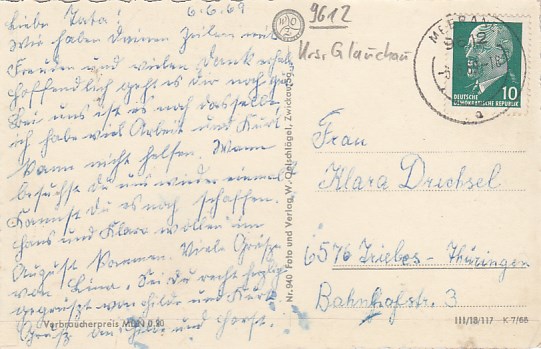 Liebe Tata! 6.6.69
Wir haben Deinen Zeilen mit
Freuden und vielen Dank erhal
hoffendlich geht es dir noch gut
Bei uns ist es noch dasselbe,
ich habe viel Arbeit und Kurt
kann nicht helfen. Wann
besuchst du uns wieder einmal?
Kannst du es noch schaffen.
Hans und Klara wollen im
August kommen. Viele Grüße
von Lina. Sei du recht herzlich
gegrüßt von Hilde und Kurt
Gruß an Hilde und Horst.
Verbraucherpreis MDN 0,20
Nr. 940 Foto und Verlag W. Oetschlögel, Zwickau
9612
Krs. Glauchau
MEERANE
9612
a
DEUTSCHE
DEMOKRATISCHE REPUBLIK
10
Frau
Klara Drechsel
6576 Triebes-Thüringen
Bahnhofstr. 3
III/18/117 K 7/66